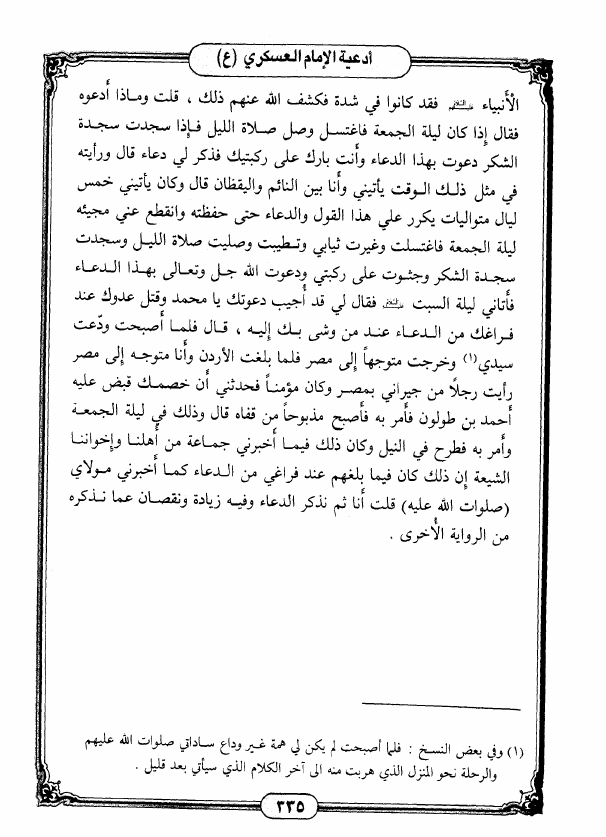 أدعية الإمام العسكري (ع)
الأنبياء عليهم السلام فقد كانوا في شدة فكشف الله عنهم ذلك ، قلت وماذا أدعوه
فقال إذا كان ليلة الجمعة فاغتسل وصل صلاة الليل فإذا سجدت سجدة
الشكر دعوت بهذا الدعاء وأنت بارك على ركبتيك فذكر لي دعاء قال ورأيته
في مثل ذلك الوقت يأتيني وأنا بين النائم واليقظان قال وكان يأتيني خمس
ليال متواليات يكرر علي هذا القول والدعاء حتى حفظته وانقطع عني مجيئه
ليلة الجمعة فاغتسلت وغيرت ثيابي وتطيبت وصليت صلاة الليل وسجدت
سجدة الشكر وجثوت على ركبتي ودعوت الله جل وتعالى بهذا الدعاء
فأتاني ليلة السبت عليه السلام فقال لي قد أُجيب دعوتك يا محمد وقتل عدوك عند
فراغك من الدعاء عند من وشى بك إليه ، قال فلما أصبحت ودّعت
سيدي(١) وخرجت متوجهاً إلى مصر فلما بلغت الأردن وأنا متوجه إلى مصر
رأيت رجلاً من جيراني بمصر وكان مؤمناً فحدثني أن خصمك قبض عليه
أحمد بن طولون فأمر به فأصبح مذبوحاً من قفاه قال وذلك في ليلة الجمعة
وأمر به فطرح في النيل وكان ذلك فيما أخبرني جماعة من أهلنا وإخواننا
الشيعة إن ذلك كان فيما بلغهم عند فراغي من الدعاء كما أخبرني مولاي
(صلوات الله عليه) قلت أنا ثم نذكر الدعاء وفيه زيادة ونقصان عما نذكره
من الرواية الأخرى .
(١) وفي بعض النسخ : فلما أصبحت لم يكن لي همة غير وداع ساداتي صلوات الله عليهم
والرحلة نحو المنزل الذي هربت منه الى آخر الكلام الذي سيأتي بعد قليل .
٣٣٥